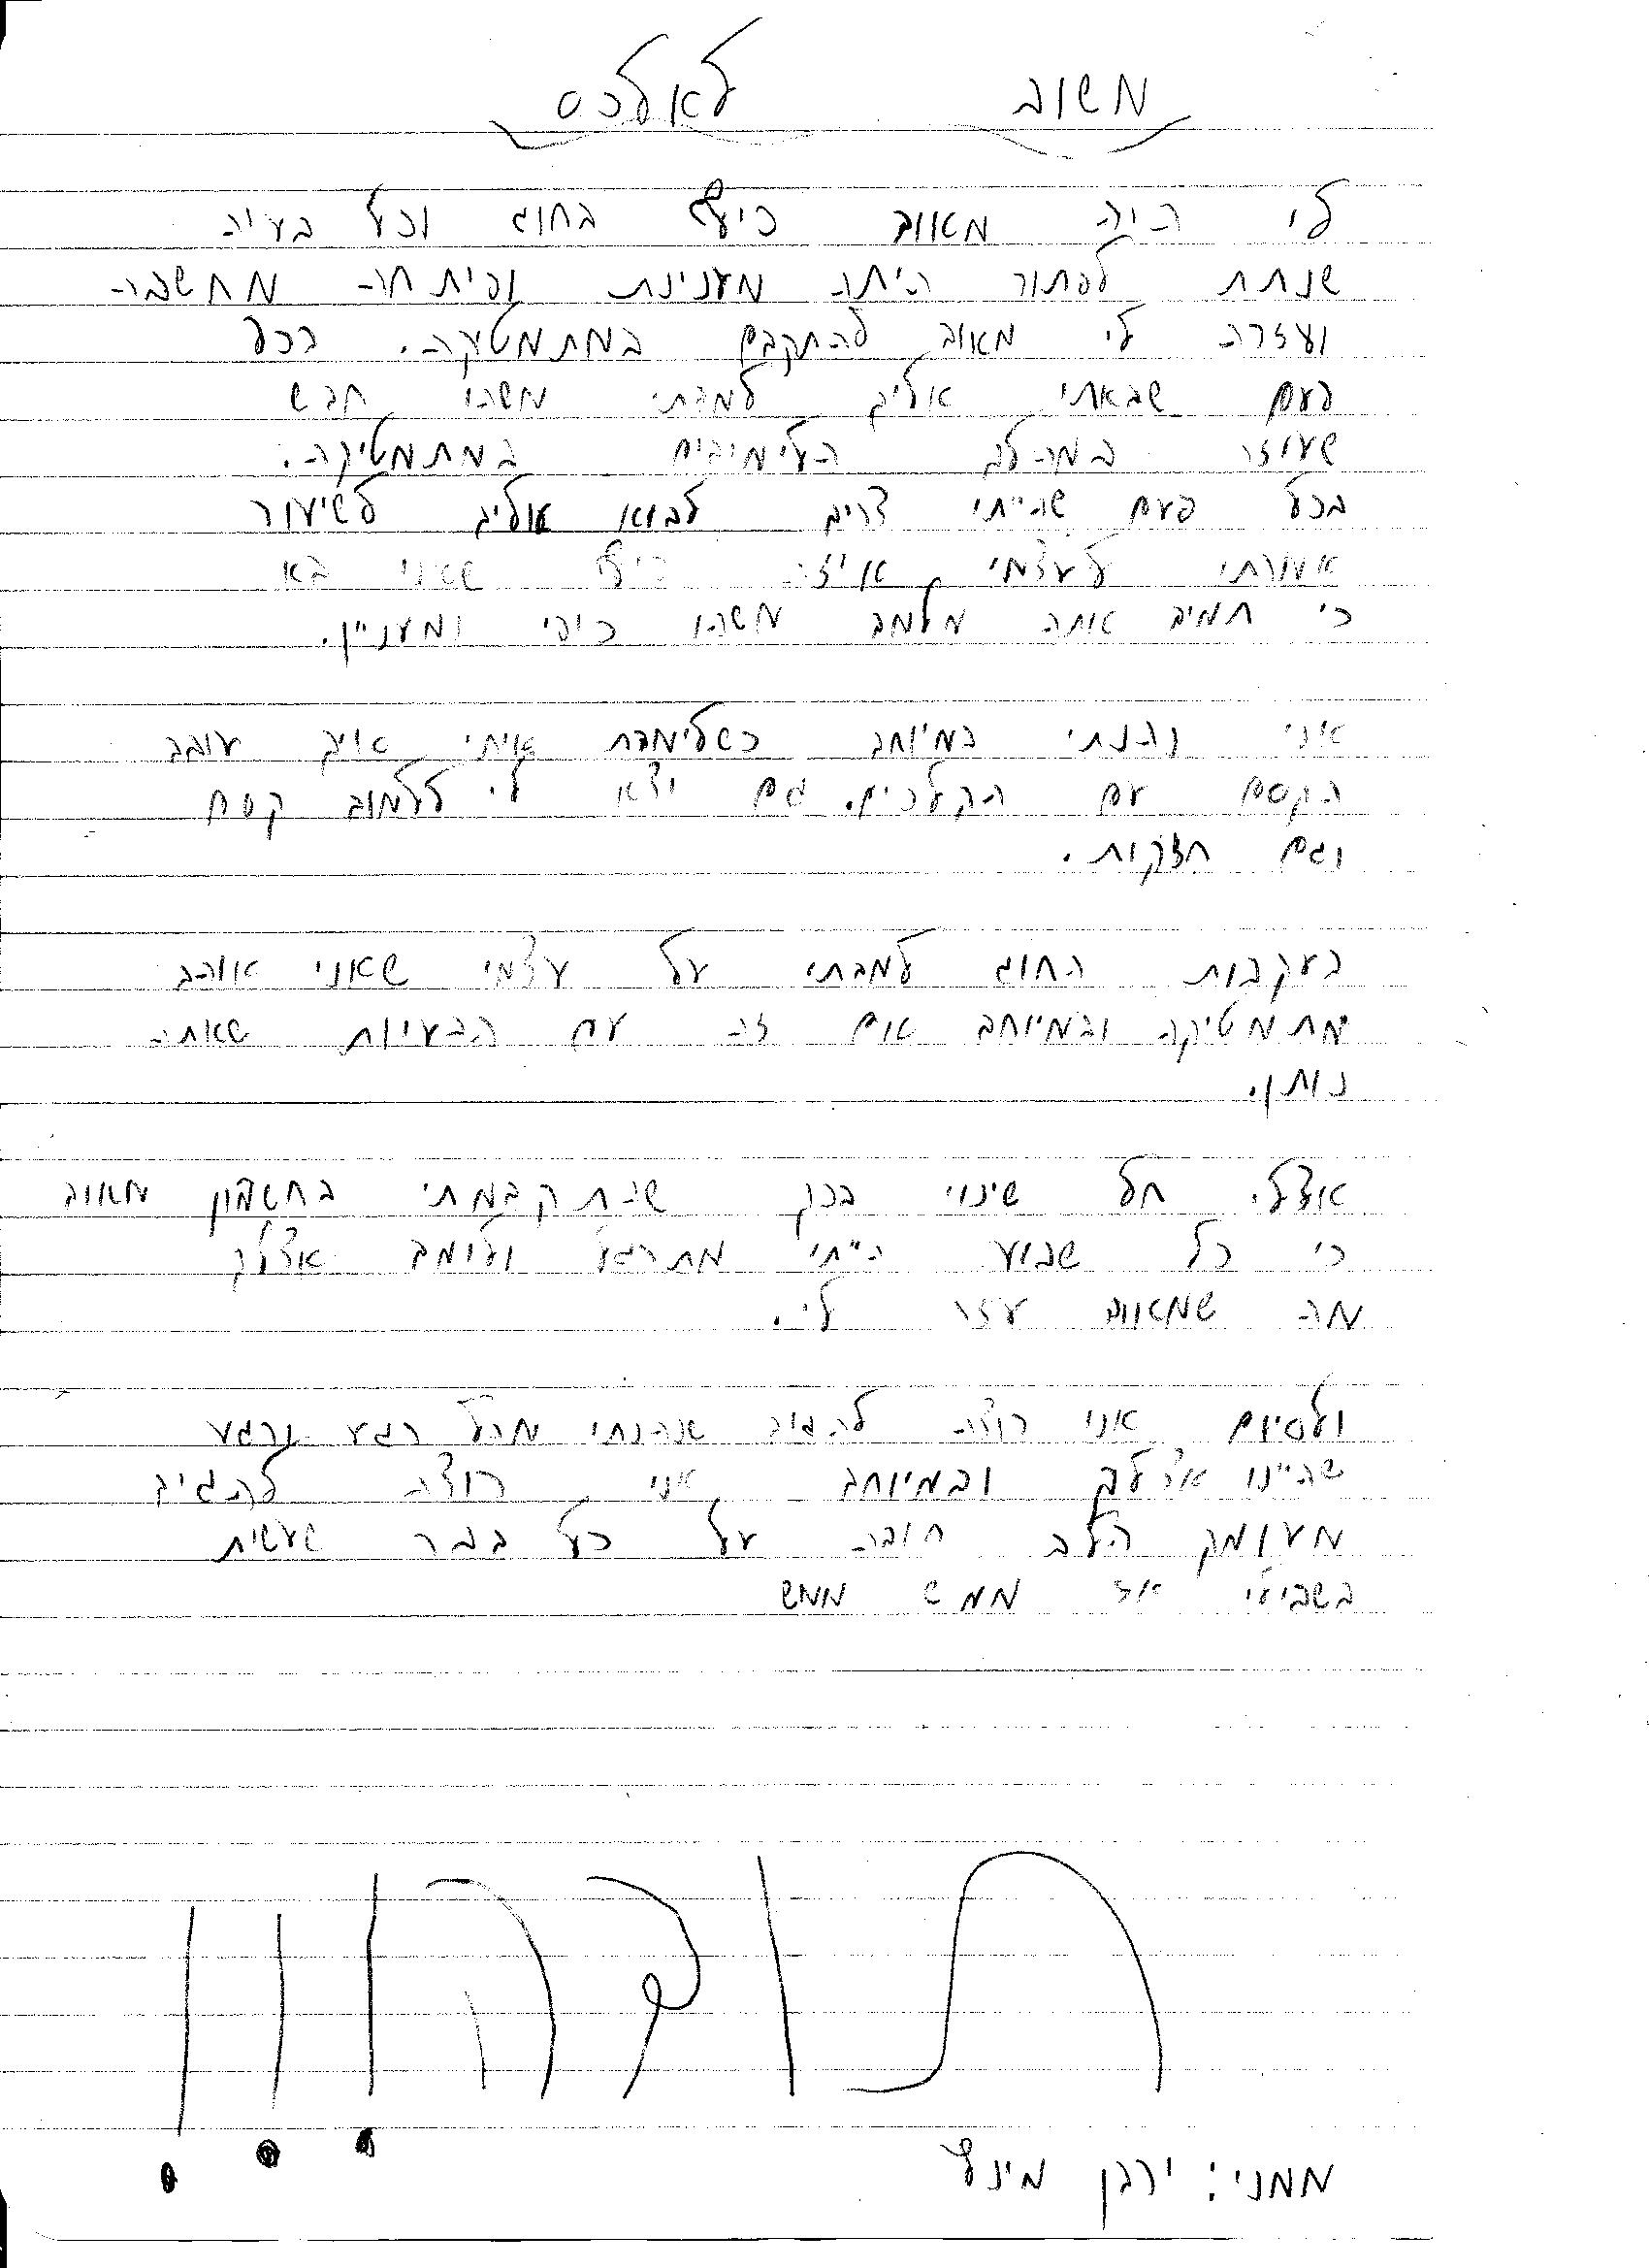 משוב לאלכס
לי היה מאוד כיף בחוג וכל בעיה
שנתת לפתור היתה מענינת ופיתחה מחשבה
ועזרה לי מאוד להתקדם במתמטקה. בכל
פעם שבאתי אליך למדתי משהו חדש
שעוזר במהלך הלימודים במתמטיקה.
בכל פעם שהייתי צריך לבוא אליך לשיעור
אמרתי לעצמי איזה כיף שאני בא
כי תמיד אתה מלמד משהו כיפי ומעניין.
אני נהנתי במיוחד כשלימדת איתי איך עובד
הקסם עם הקלפים. גם יצא לי ללמוד קסם
וגם חזקות.
בעקבות החוג למדתי על עצמי שאני אוהב
מתמטיקה ובמיוחד אם זה עם הבעיות שאתה
נותן.
אצלי חל שינוי בכך שהתקדמתי בחשבון מאוד
כי כל שבוע הייתי מתרגל ולומד אצלך
מה שמאוד עזר לי.
ולסיום אני רוצה להגיד שנהנתי מכל רגע ורגע
שהיינו אצלך ובמיוחד אני רוצה להגיד
מעומק הלב תודה על כל דבר שעשית
בשבילי אז ממש ממש
תודה!!!
ממני: ירדן מינץ